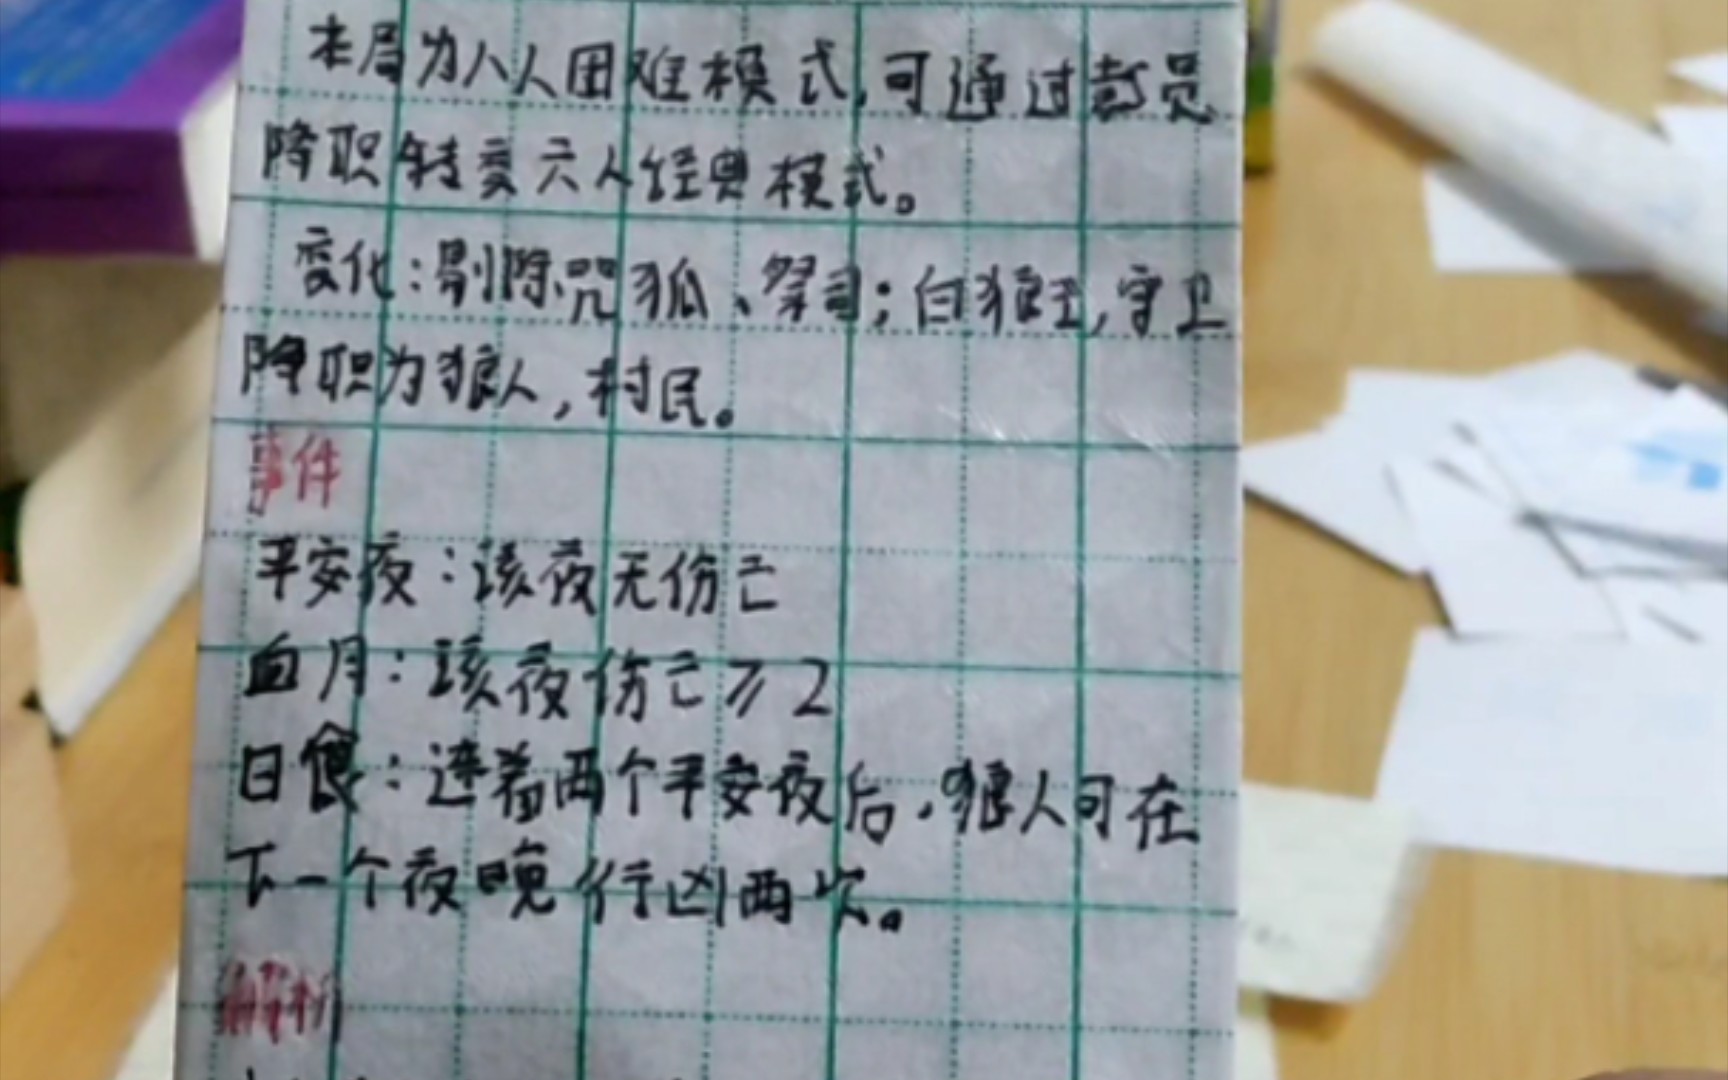 本局为八人困难模式,可通过裁员
降职转变六人经典模式。
变化:剔除咒狐、祭司;白狼王,守卫
降职为狼人,村民。
事件
平安夜:该夜无伤亡
血月:该夜伤亡≥2
日食:连着两个平安夜后,狼人可在
下一个夜晚行凶两次。
解析